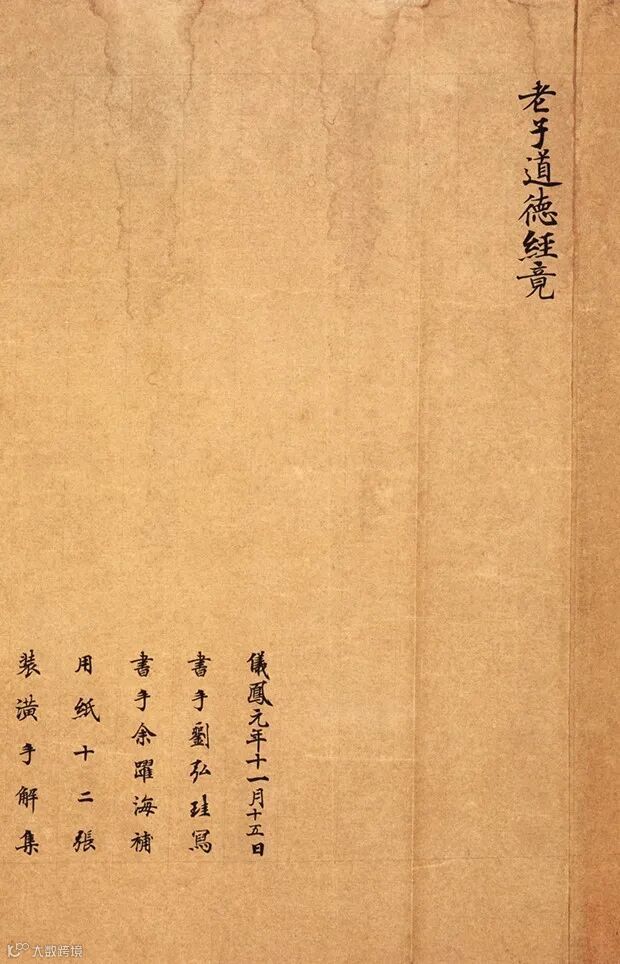 老子道德經竟
儀鳳元年十一月十五日
書手劉弘珪寫
書手余躍海補
用紙十二張
装潢手解集
大数跨境